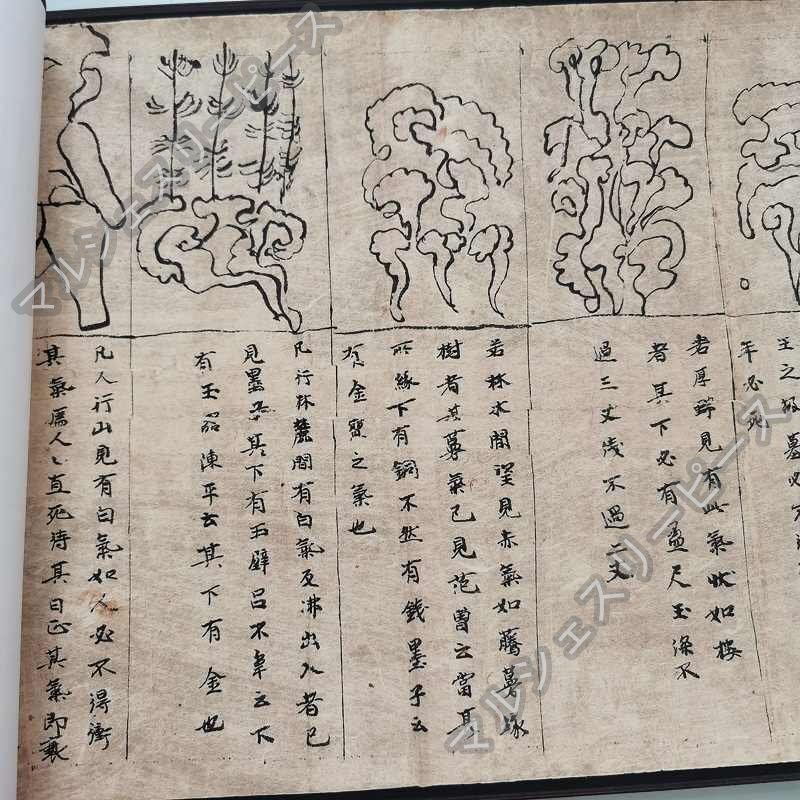 王之故墓必
年必死
若厚野見有此氣狀如樓
者其下必有盈尺玉深不
過三丈淺不過二丈
若林水間望見赤氣如藤蔓緣
樹者其蔓氣已見范曾云當其
所緣下有銅不然有錢墨子云
有金寶之氣也
凡行林麓間有白氣及沸出入者已
見墨子其下有玉璧呂不韋云下
有玉器陳平云其下有金也
凡人行山見有白氣如人必不得衝
其氣爲人々直死待其日正其氣即衰
マルシェスリーピース
マルシェスリーピース